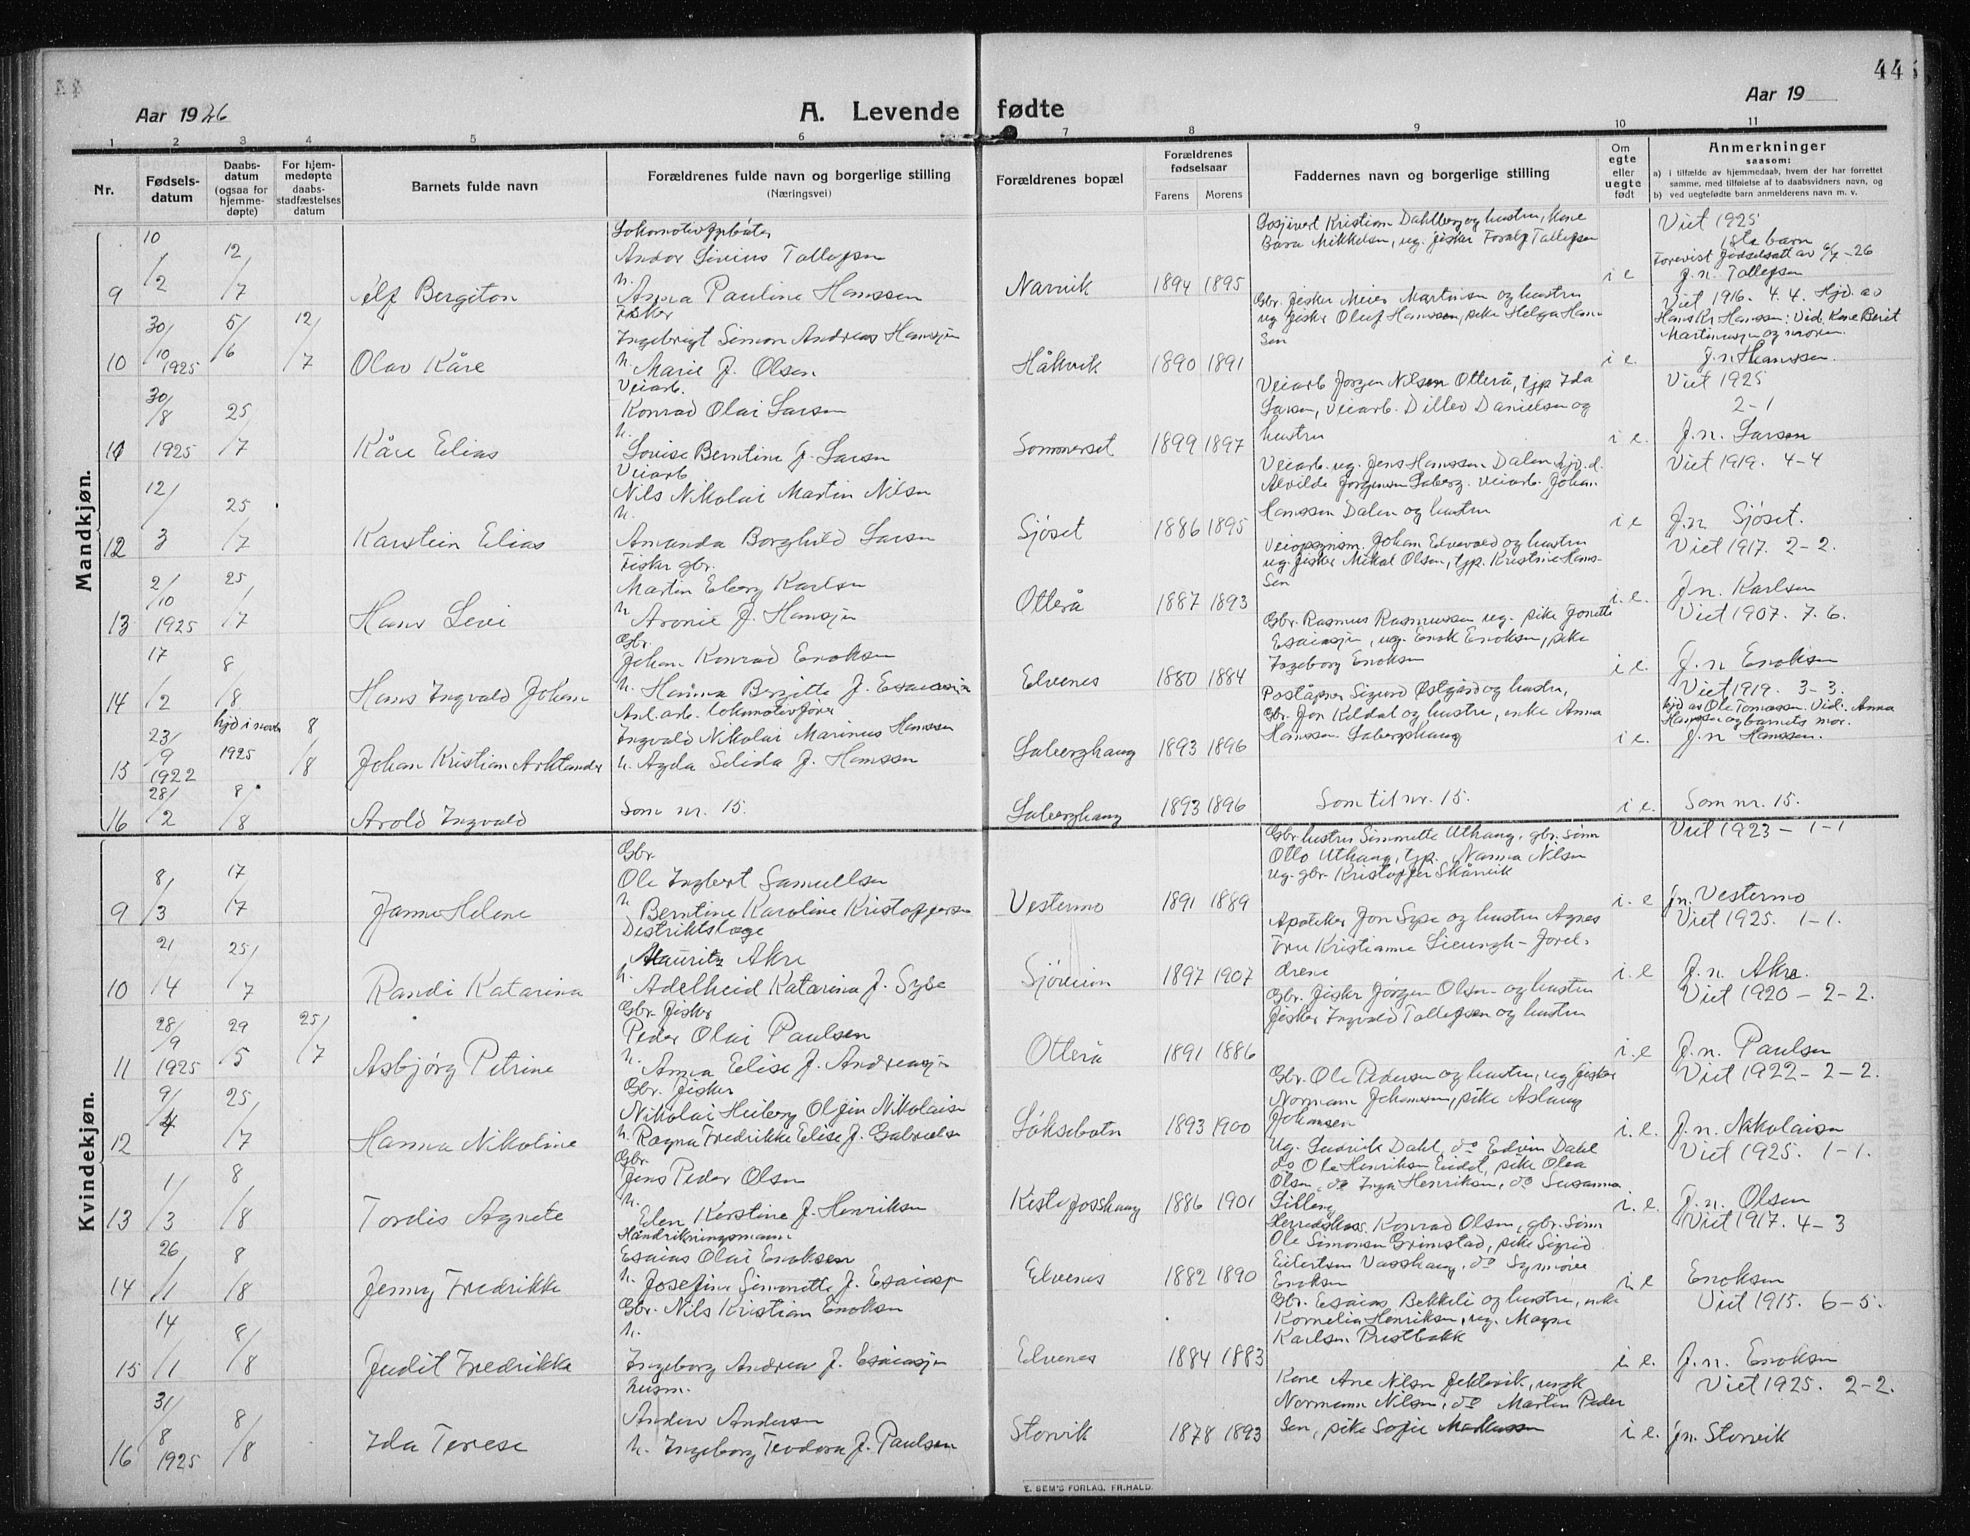 44
Aar 1926
A. Levende fødte
Aar 19
1 2 3 4 5 6 7 8 9 10 11
Nr.
Fødsels-
datum
Daabs-
datum
(ogsaa for
hjemme-
døpte)
For hjem-
medøpte
daabs-
stadfæstelses
datum
Barnets fulde navn
Forældrenes fulde navn og borgerlige stilling
(Næringsvei)
Forældrenes bopæl
Forældrenes
fødselsaar
Farens Morens
Faddernes navn og borgerlige stilling
Om
egte
eller
uegte
født
Anmerkninger
saasom:
a) i tilfælde av hjemmedaab, hvem der har forrettet
samme, med tilføielse af to daabsvidners navn, og
b) ved uegtefødte barn anmelderens navn m. v.
Mandkjøn.
9 10/2 12/7 Alf Bergiton
Andor Sivius Tollefsen
h. Anna Pauline Hanssen
Narvik 1894 1895
Kristian Dahlberg og hustru, kone
Bara Mikkelsen, ug. fisker Tollefsen
i e
Viet 1925
1ste barn
Forevist fødselsatt av 6/7-26
J. n. Tollefsen
10 30/10 1925 5/6 12/7 Olav Kåre
Fisker
Ingebrigt Simon Andreas Hansen
h. Marie J. Olsen
Håkvik 1890 1891
Gbr. fisker Meier Martinsen og hustru
ug fisker Oluf Hanssen, pike Helga Han-
sen
i e
Viet 1916. 4. 4. Hjd. av
Hans Kr. Hanssen: Vid. Kone Berit
Martinusen og moren.
J. n. Hanssen.
11 30/8 1925 25/7 Kåre Elias
Veiarb.
Konrad Olai Larsen
h.
Lovise Berntine J. Larsen
Sommerset 1899 1897
Veiarb. Jørgen Nilsen Otterå, tjp Ida
Larsen, veiarb. Ditlev Danielsen og
hustru
i e.
Viet 1925
2-1
J. n. Larsen
12 12/3 25/7 Karstein Elias
Veiarb
Nils Nikolai Martin Nilsen
h.
Amanda Borghild Larsen
Sjöset 1886 1895
Veiarb. ug. Jens Hanssen Dalen, hjv. d.
Alvilde Jørgensen Laberg. veiarb. Johan
Hanssen Dalen og hustru
i e
Viet 1919. 4-4
J. n. Sjöset.
13 2/10 1925 25/7 Hans Levi
Fisker gbr.
Martin Eberg Karlsen
h. Aronie J. Hansen
Otterå 1887 1893
Veiopsynsm. Johan Elvevold og hustru
ug. fisker Mikal Olsen, tjp. Kristine Hans-
sen
i e.
Viet 1917. 2-2.
J. n. Karlsen
14 17/2 8/8 Hans Ingvald Johan
Gbr
Johan Konrad Enoksen
h. Hanna Bergitte J. Esaiassen
Elvenes 1880 1884
Gbr. Rasmus Rasmussen ug. pike Jonette
Esaiassen, ug. Enok Enoksen, pike
Ingeborg Enoksen
i e.
Viet 1907. 7. 6.
J. n Enoksen
15 23/9 1922 hjd i november 1925 8/8 Johan Kristian Arklander
Anl. arb. lokomotivfører
Ingvald Nikolai Marinus Hanssen
h. Agda Selida J. Hanssen
Laberghaug 1893 1896
Poståpner Sigurd Østgård og hustru,
Gbr. Jon Keldal og hustru, enke Anna
Hanssen Laberghaug
i e.
Viet 1919. 3-3.
hjd av Ole Tomassen. Vid: Anna
Hanssen og barnets mor.
J. n Hanssen.
16 28/2 8/8 Arold Ingvald
Som nr. 15.
Laberghaug 1893 1896
Som til nr. 15.
i e.
Som nr. 15.
Kvindekjøn.
9 8/3 17/7 Janna Helene
Gbr.
Ole Ingbert Samuelsen
h. Berntine Karoline Kristoffersen
Vestermo 1891 1889
Gbr hustru Simonette Uthaug, gbr. sønn
Otto Uthaug, tjp. Nanna Nilsen
ug. gbr Kristoffer Skårvik
i. e
Viet 1923 - 1-1
jn. Vestermo
10 21/4 25/7 Randi Katarina
Distriktslæge
Mauritz Akre
h. Adelheid Katarina J. Syse
Sjøveien 1897 1907
Apoteker Jon Syse og hustru Agnes
Fru Kristianne Lieungh - Jorel-
drene
i. e
Viet 1925. 1-1.
J. n. Akre.
11 28/9 1925 29/5 25/7 Asbjørg Petrine
Gbr. fisker
Peder Olai Paulsen
h. Anna Elise J. Andreassen
Otterå 1891 1886
Gbr. fisker Jørgen Olsen og hustru
fisker Ingvald Tollefsen og hustru
i. e
Viet 1920 - 2-2.
J. n. Paulsen
12 9/4 25/7 Hanna Nikoline
Gbr. fisker
Nikolai Heiberg Olfin Nikolaisen
h. Ragna Fredrikke Elise J. Gabrielsen
Løksebotn 1893 1900
Gbr. Ole Pedersen og hustru, ug fisker
Normann Johansen, pike Aslaug
Johansen
i. e.
Viet 1922 - 2 - 2.
J. n. Nikolaisen
13 1/3 8/8 Tordis Agnete
Gbr.
Jens Peder Olsen
h.
Elen Kerstine J. Henriksen
Kistefosshaug 1886 1901
Ug. Ludvik Dahl, do Edvin Dahl
do Ole Henriksen Eidet, pike Olea
Olsen, do Inga Henriksen, do Susanna
i. e.
Viet 1925. 1-1.
J. n. Olsen
14 26/1 8/8 Jenny Fredrikke
Esaias Olai Enoksen
h. Josefine Simonette J. Esaiassen
Elvenes 1882 1890
Konrad Olsen, gbr. sønn
Ole Simonsen Grimstad, pike Sigrid
Eilertsen Vasshaug, do Synnøve
Enoksen
i e
Viet 1917. 4-3
Enoksen
15 14/1 8/8 Judit Fredrikke
Gbr. Nils Kristian Enoksen
h.
Ingeborg Andrea J. Esaiassen
Elvenes 1884 1883
Gbr. Esaias Bekkeli og hustru, enke
Kornelia Henriksen, ug. Magne
Karlsen Prestbakk
i e.
Viet 1915. 6-5.
J. n. Enoksen
16 31/8 1925 8/8 Ida Terese
husm.
Anders Andersen
h. Ingeborg Teodora J. Paulsen
Storvik 1878 1893
Kone Ane Nilsen Jektevik, ungk
Normann Nilsen, do Martin Peder
sen, pike Sofie Markussen
i e.
Viet 1925. 2-2.
jn. Storvik
E. SEM'S FORLAG, FR.HALD.